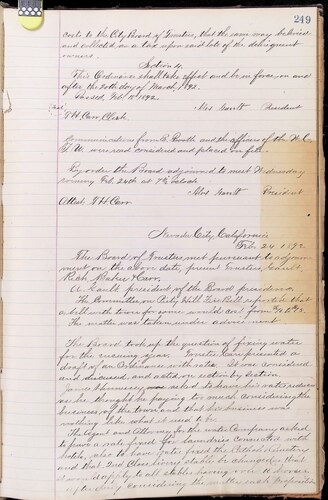 249
costs to the City Board of Trustees, that the same may be levied
and collected as a tax upon said lots of the delinquent
owners.
Section 4.
This Ordinance shall take effect and be in force, on and
after, the 20th day of March, 1892.
Passed, Feb 1892.
Gault President
T H Carr Clerk.
Communications from S. Booth and the officers of the N. C.
were read considered and placed on file.
By order the Board adjourned to meet Wednesday
evening Feb. 24th at 7½ oclock
Gault President
Attest T H Carr
Nevada City, California
Feb. 24 1892
The Board of Trustees met pursuant to adjourn-
ment on the above date, present Trustees, Gault,
Rich and Carr.
A. Gault president of the Board presided.
The Committee on City Hall Fire Bell reported that
a bell with tower for same would cost from
The matter was taken under advisement
The Board took up the question of fixing water
for the ensuing year. Trustee Carr presented a
draft of an Ordinance on the rates. It was considered
and discussed, and acted on section by section.
James Hennessy was asked to have his rates reduced
as he thought he paying too much considering the
business of the town and that his business was
nothing like what it used to be.
The Agent and Attorney for the water Company asked
to have a rate fixed for laundries connected with
hotels, also to have rates fixed the Catholic Cemetery
and that 2nd Class livery stable be changed, that
it would apply to all stables having over 2 horses
After duly considering the matter such propositions